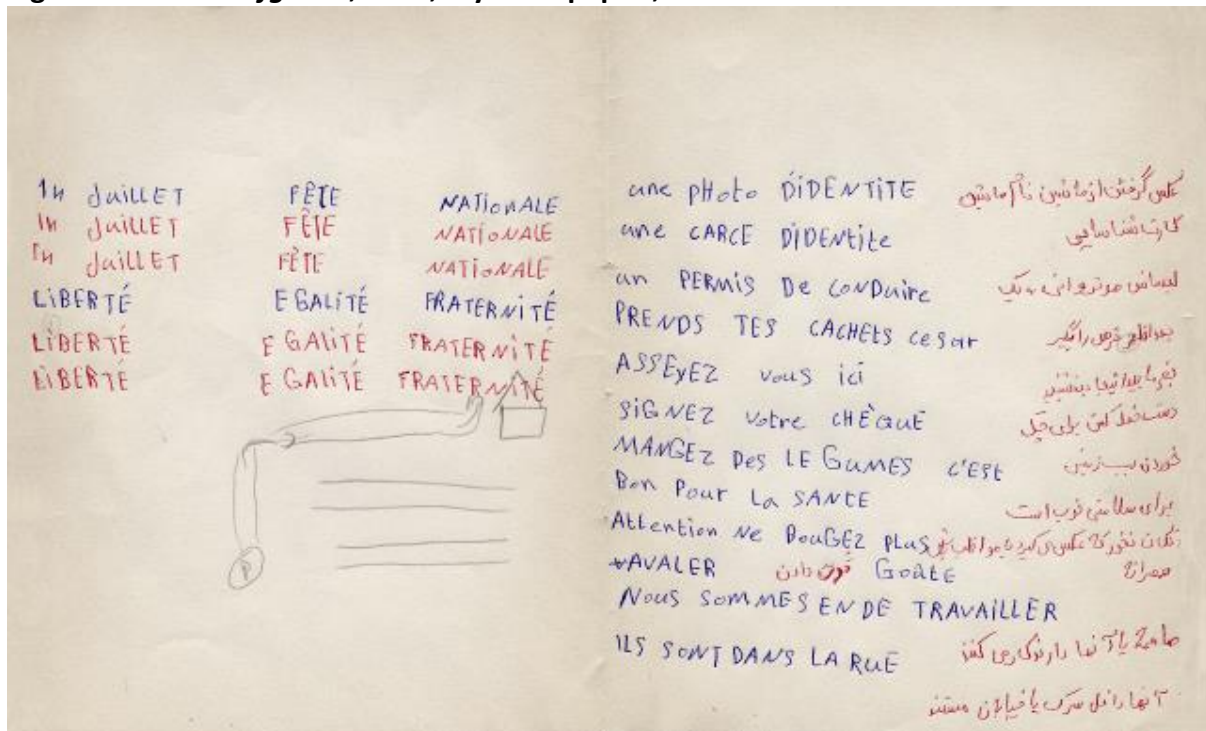 14 JUILLET FÊTE NATIONALE
14 JUILLET FÊTE NATIONALE
14 JUILLET FÊTE NATIONALE
LIBERTÉ EGALITÉ FRATERNITÉ
LIBERTÉ EGALITÉ FRATERNITÉ
LIBERTÉ EGALITÉ FRATERNITÉ
P
une PHoto DIDENTITE عکس گرفتن از ماشین
une CARCE DIDENtite کارت شناسایی
un PERMIS De CONDuire
PRENDS TES CACHETS cesar قرص را بگیر
ASSEyEZ vous ici بفرمایید اینجا بنشینید
SIGNEZ votre CHÈQUE دست خط کن برای چک
MANGEZ Des LEGuMES C'EST خوردن سبزی
Bon Pour La SANTE برای سلامتی خوب است
Attention Ne BouGEZ PLus تکان نخور که عکس
AVALER قورت دادن Goûte
Nous SOMMES EN DE TRAVAILLER
ILS SONT DANS LA RUE ما همه یا آنها دارند کار می کنند
آنها داخل سرک یا خیابان هستند